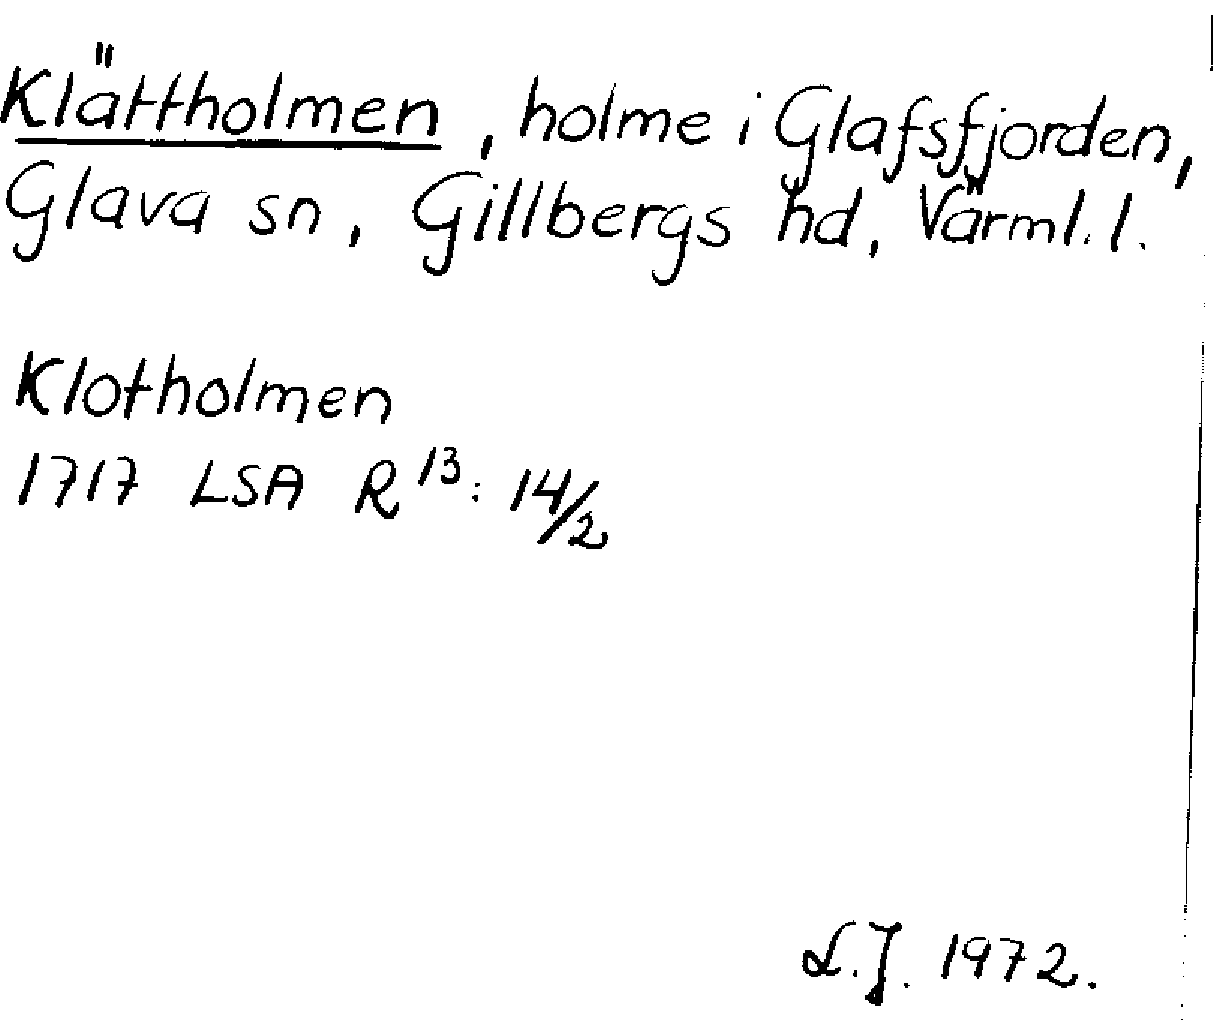 Klättholmen, holme i Glafsfjorden,
Glava sn, Gillbergs hd, Värml. l.
Klotholmen
1717 LSA R 13: 14/2
L.J. 1972.